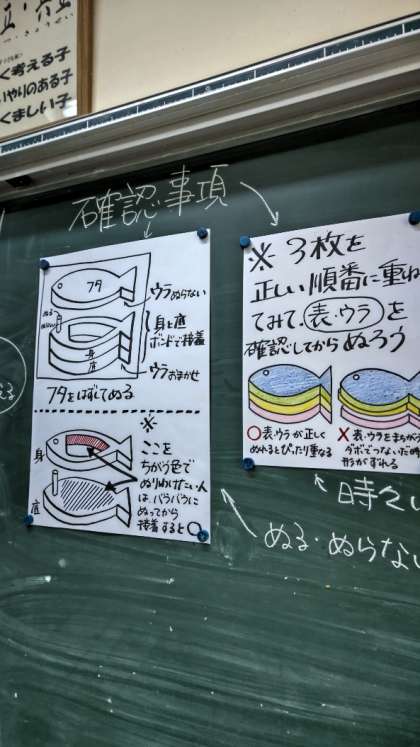 く考える子
いやりのある子
くましい子
確認事項
フタ
ウラぬらない
身と底
ボンドで接着
身
底
ウラおまかせ
フタをはずしてぬる
※
身
底
ここを
ちがう色で
ぬりわけたい人
は、バラバラに
ぬってから
接着すると○
※3枚を
正しい順番に重ね
てみて、表・ウラを
確認してからぬろう
○表・ウラが正しく
ぬれるとぴったり重なる
×表・ウラをまちがう
ダボでつないだ時
形がずれる
時々い
ぬる・ぬらない